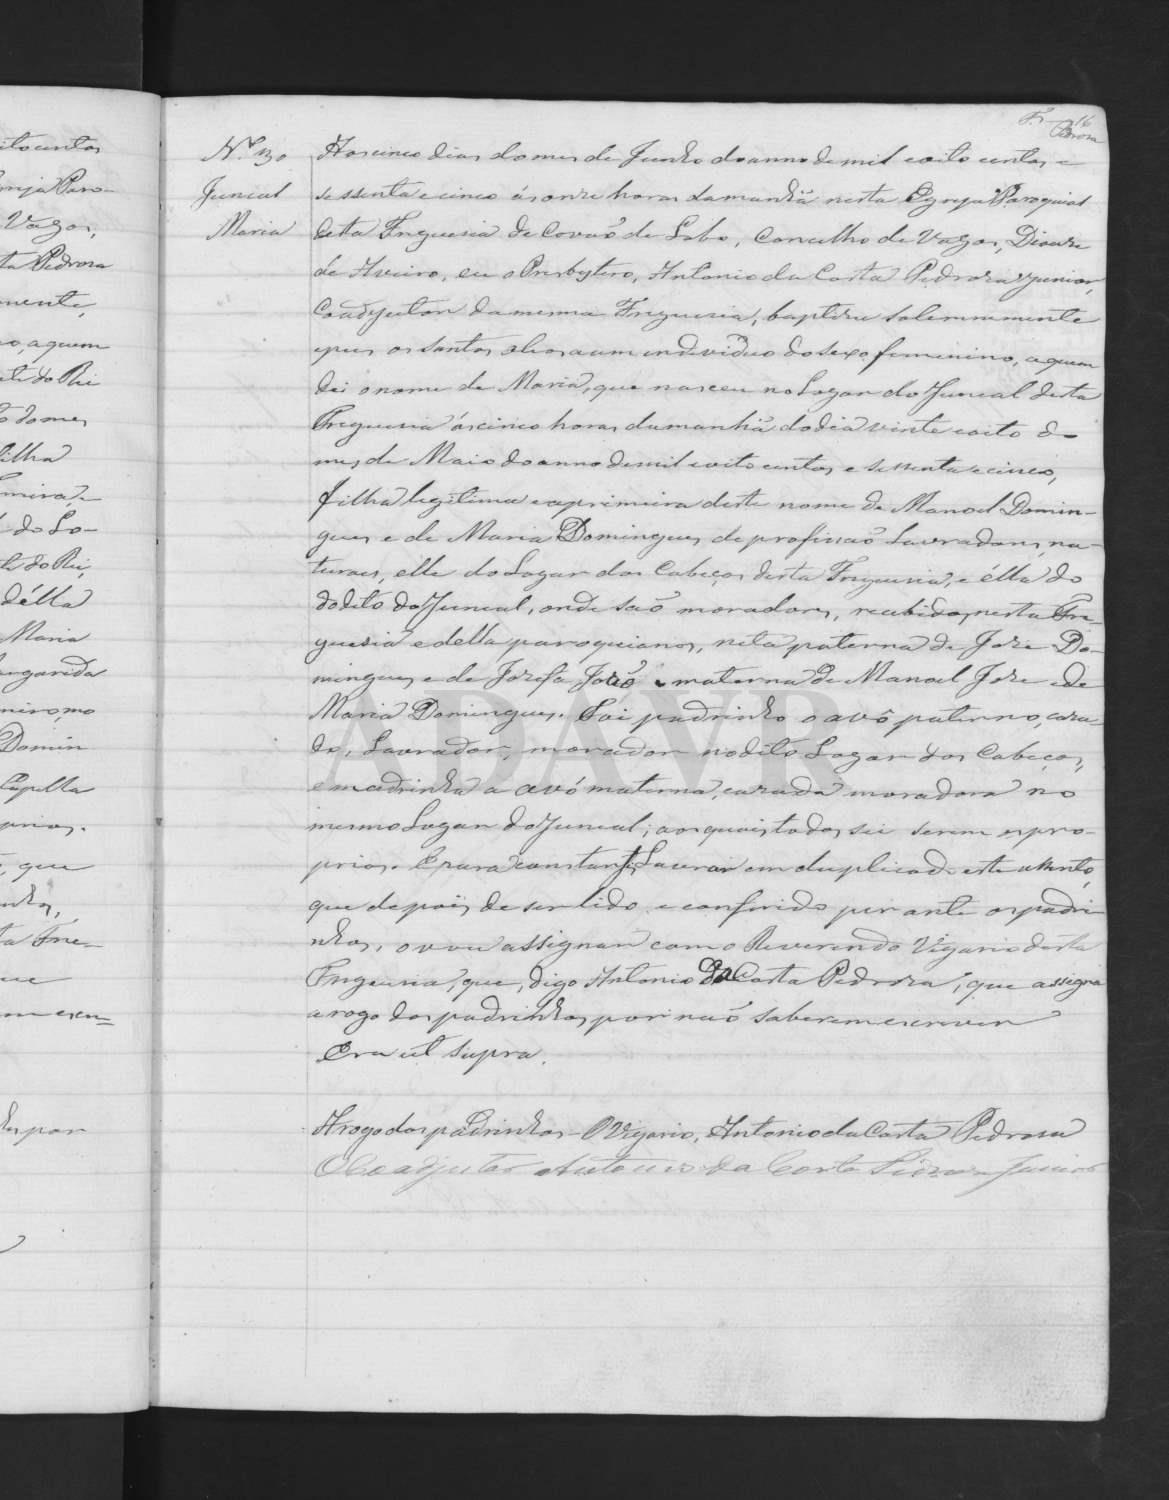 itocentos
Vagos,
ta Pedroza
nente,
o, a quem
to do mes
filha
do Lo-
d'élla
Maria
argarida
Domin
Capella
prios.
, que
ta Fre-
F. 16
N.º 30
Juncal
Maria
Aos cinco dias do mes de Junho do anno de mil e oito centos e
sessenta e cinco ás onze horas da manhã nesta Egreja Paroquial
desta Freguesia de Covaõ do Lobo, Concelho de Vagos, Diocese
de Aveiro, eu o Presbytero, Antonio da Costa Pedroza Junior,
Coadjutor da mesma Freguesia, baptizei solemnemente
e puz os santos oleos a um individuo do sexo femenino, a quem
dei o nome de Maria, que nasceu no Logar do Juncal desta
Freguesia ás cinco horas da manhã do dia vinte e oito do
mes de Maio do anno de mil e oito centos e sessenta e cinco,
filha legitima e a primeira deste nome de Manoel Domin-
gues e de Maria Domingues, de profissaõ Lavradores, na-
turaes, elle do Logar dos Cabeços desta Freguesia, e élla do
do dito do Juncal, onde saõ moradores, recebidos nesta Fre-
guesia e della paroquianos, neta paterna de Jose Do-
mingues e de Josefa José e materna de Manoel Jose e de
Maria Domingues. Foi padrinho o avô paterno, casa-
do, Lavrador, morador no dito Logar dos Cabeços,
e madrinha a avó materna, casada moradora no
mesmo Logar do Juncal; aos quais todos sei serem os pro-
prios. E para constar Lavrei em duplicado este assento,
que depois de ser lido e conferido perante os padri-
nhos, o vou assignar com o Reverendo Vigario desta
Freguesia, que, digo Antonio da Costa Pedroza, que assigna
a rogo dos padrinhos por naõ saberem escrever
Era ut supra.
A rogo dos padrinhos - O Vigario, Antonio da Costa Pedroza
O Coadjutor Antonio da Costa Pedroza Junior
ADAVR